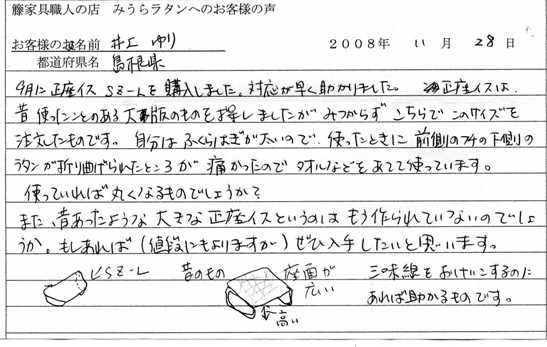 籐家具職人の店 みうらラタンへのお客様の声
お客様のお名前 井上 ゆり 2008年 11月 28日
都道府県名 島根県
9月に正座イス SZ-Lを購入しました。対応が早く助かりました。 正座イスは、
昔使ったことのある大判版のものを探しましたがみつからず こちらでこのサイズを
注文したものです。自分はふくらはぎが太いので、使ったときに前側のフチの下側の
ラタンが折り曲げられたところが 痛かったのでタオルなどをあてて使っています。
使っていれば丸くなるものでしょうか?
また、昔あったような大きな正座イスというのは もう作られていないのでしょ
うか。もしあれば(値段にもよりますが)ぜひ入手したいと思います。
SZ-L 昔のもの 座面が 三味線をおけいこするのに
広い あれば助かるものです。
高い